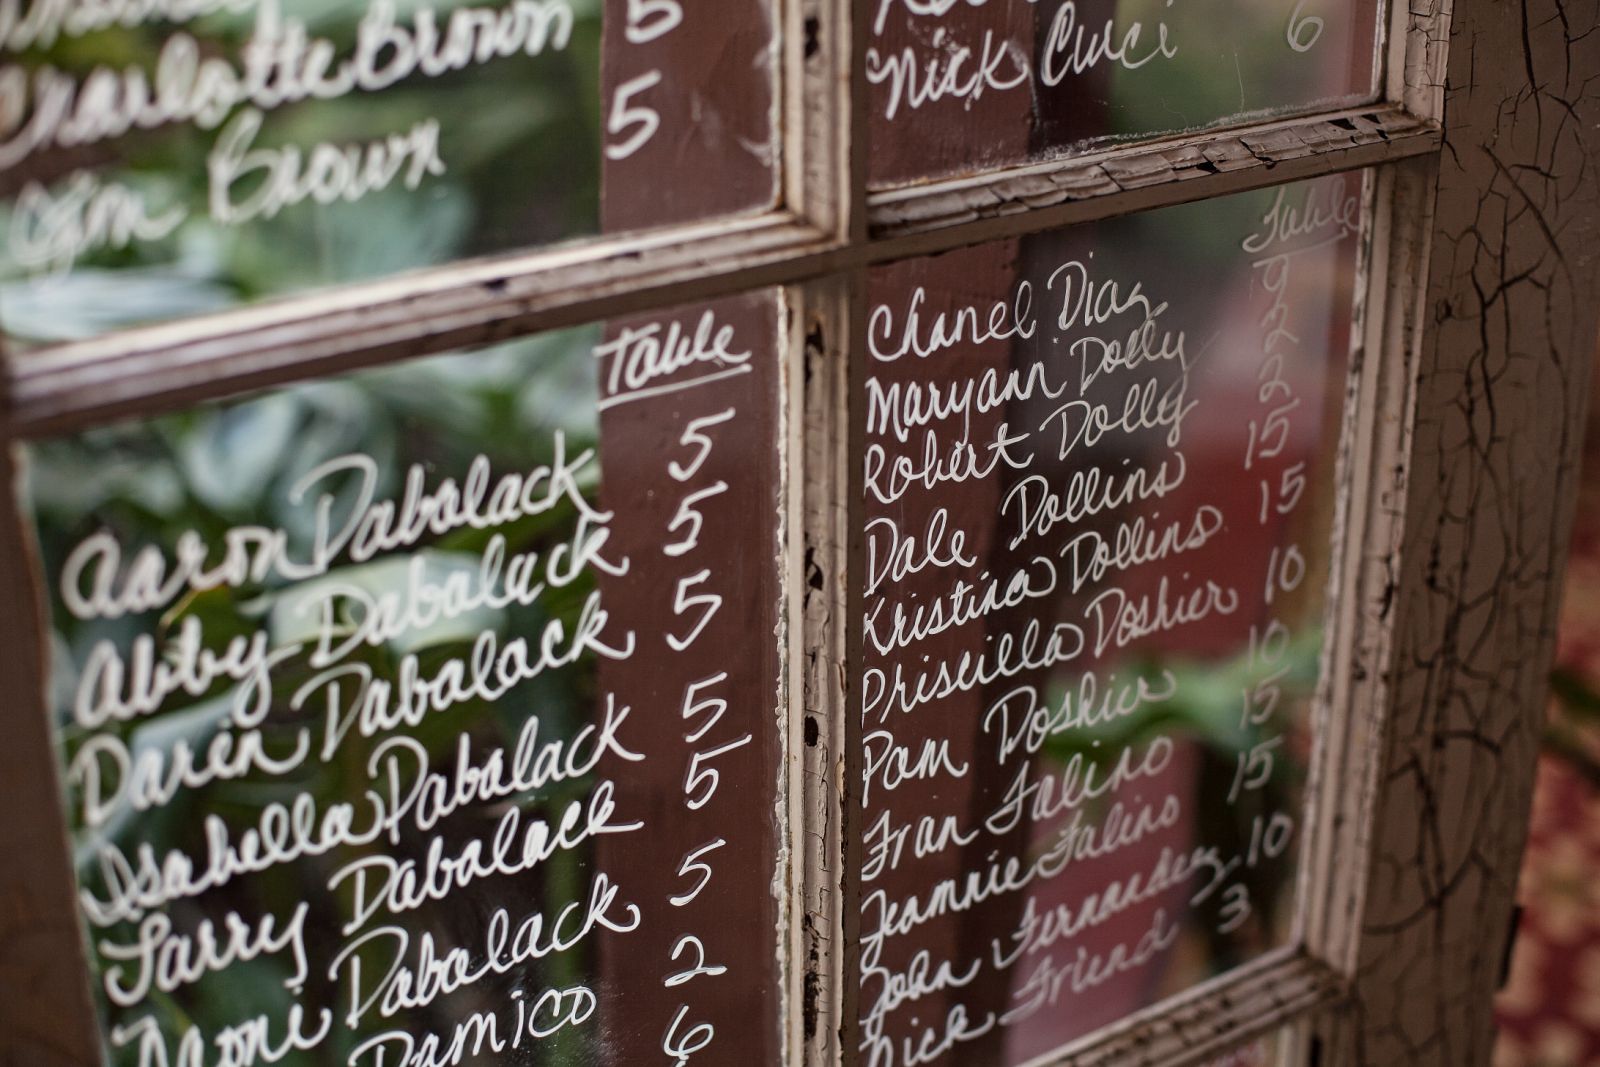 Charlotte Brown 5
Jim Brown 5
Nick Cucci 6
Table
Aaron Dabalack 5
Abby Dabalack 5
Darin Dabalack 5
Isabella Dabalack 5
Larry Dabalack 5
Dabalack 5
Damico 2
6
Table
Chanel Diaz 9
Maryann Dolly 2
Robert Dolly 2
Dale Dollins 15
Kristina Dollins 15
Priscilla Doshier 10
Pam Doshier 10
Fran Falino 15
Jeannie Falino 15
John Fernandez 10
Friend 3